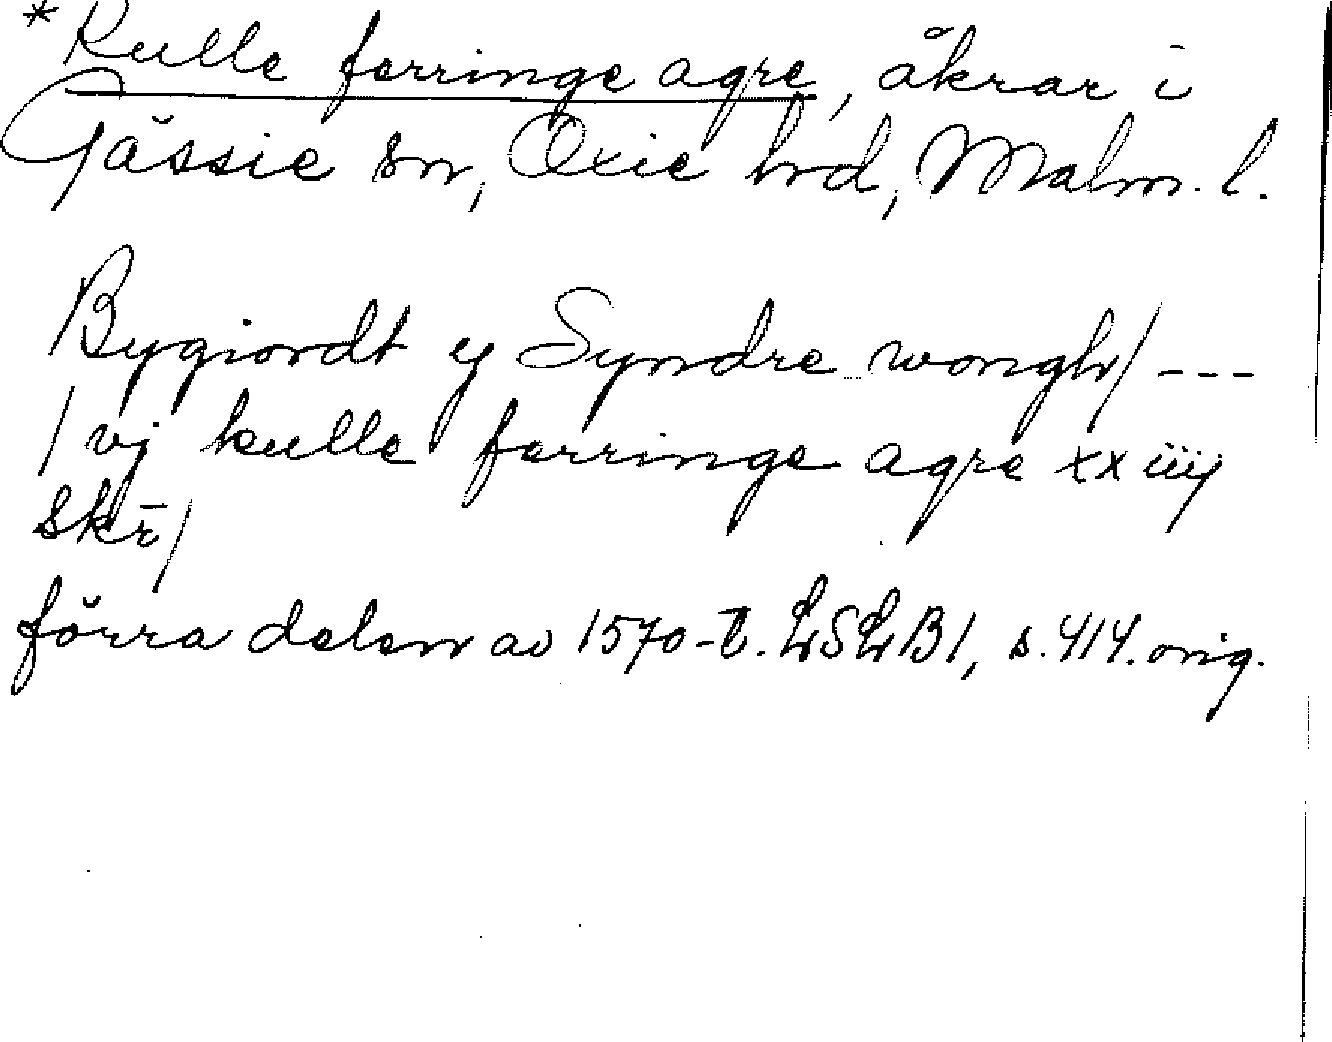 *Kulle ferringe agre, åkrar i
Gässie sn, Oxie hd, Malm. l.
Bygiordt ij Syndre wongh/ ---
/ vj kulle ferringe agre xx iiij
skr̄/
förra delen av 1570-t. LSLB1, s. 414. orig.